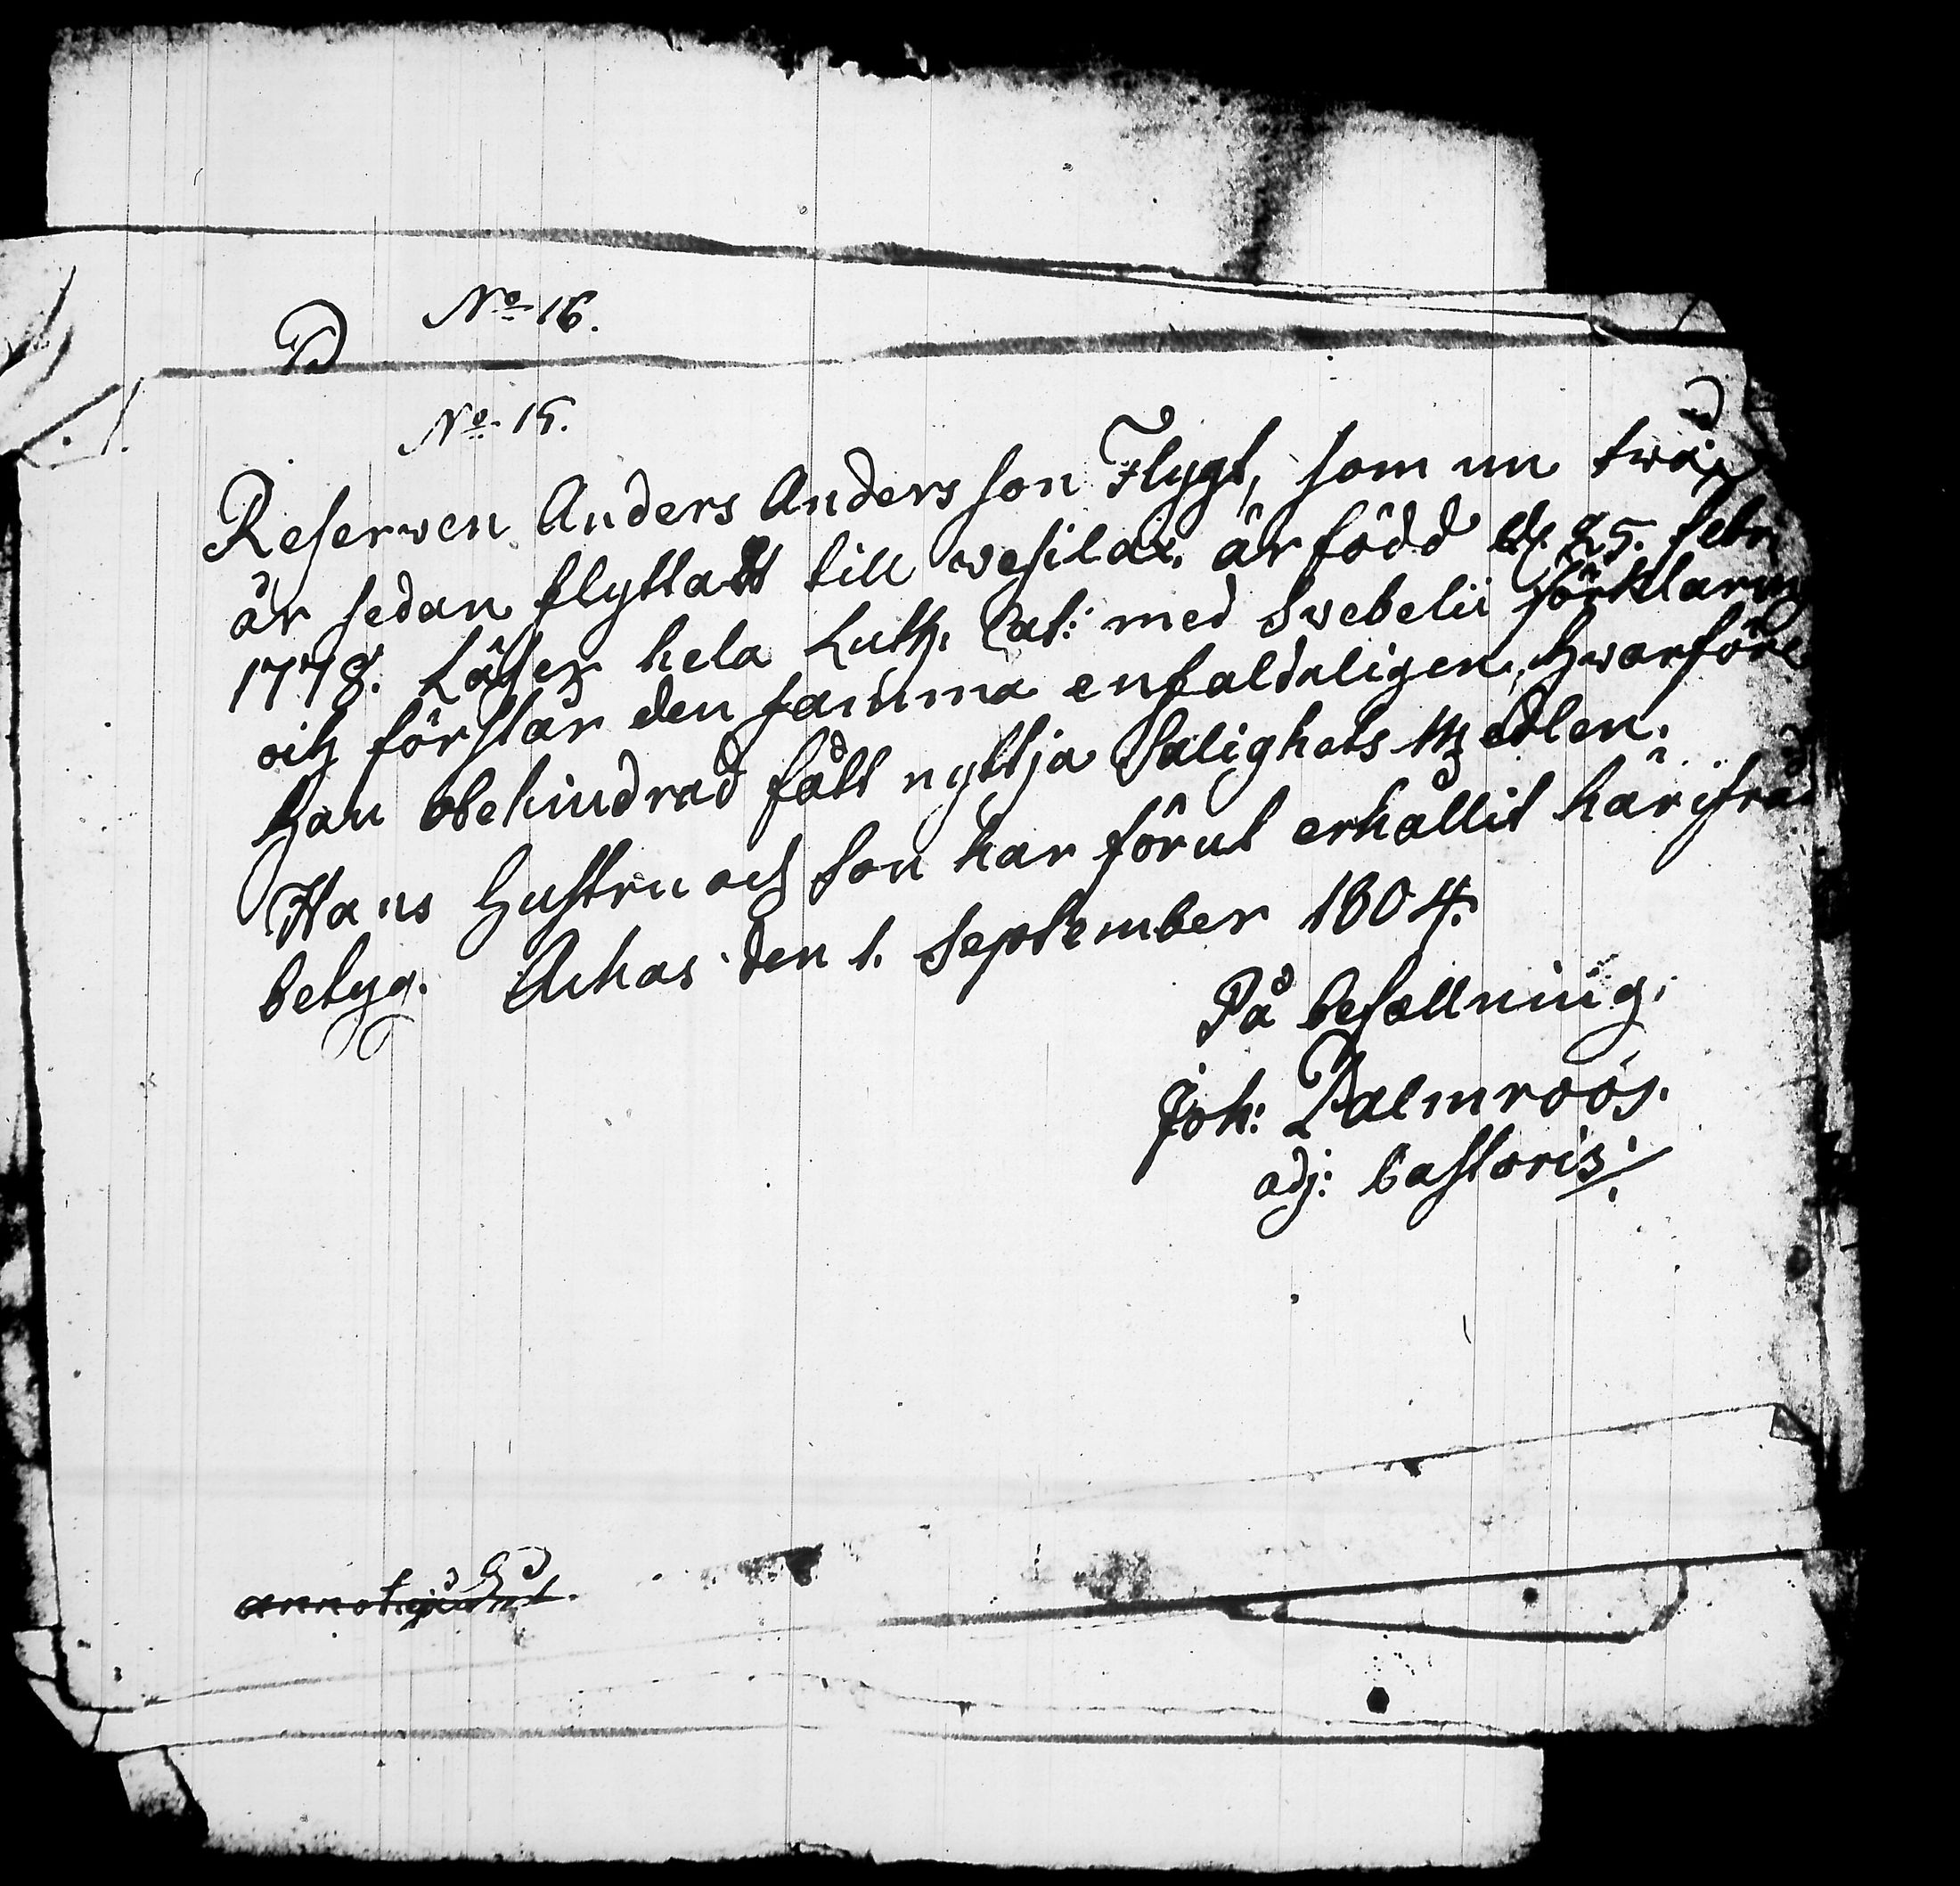 No 16.
No 15.
Reserwen Anders Andersson Flygt, som nu twå
år sedan flyttadt till wesilax, är född d. 25. febr
1778. Läser hela Luth. Cat: med Swebelii förklarin
och förstår den samma enfaldeligen, hwarföre
han obehindrad fått nyttja Salighets Medlen.
Hans Hustru och Son har förut erhållit härifrån
betyg. Ackas den 1. September 1804.
På befallning,
Joh: Palmroos.
adj: Pastoris.